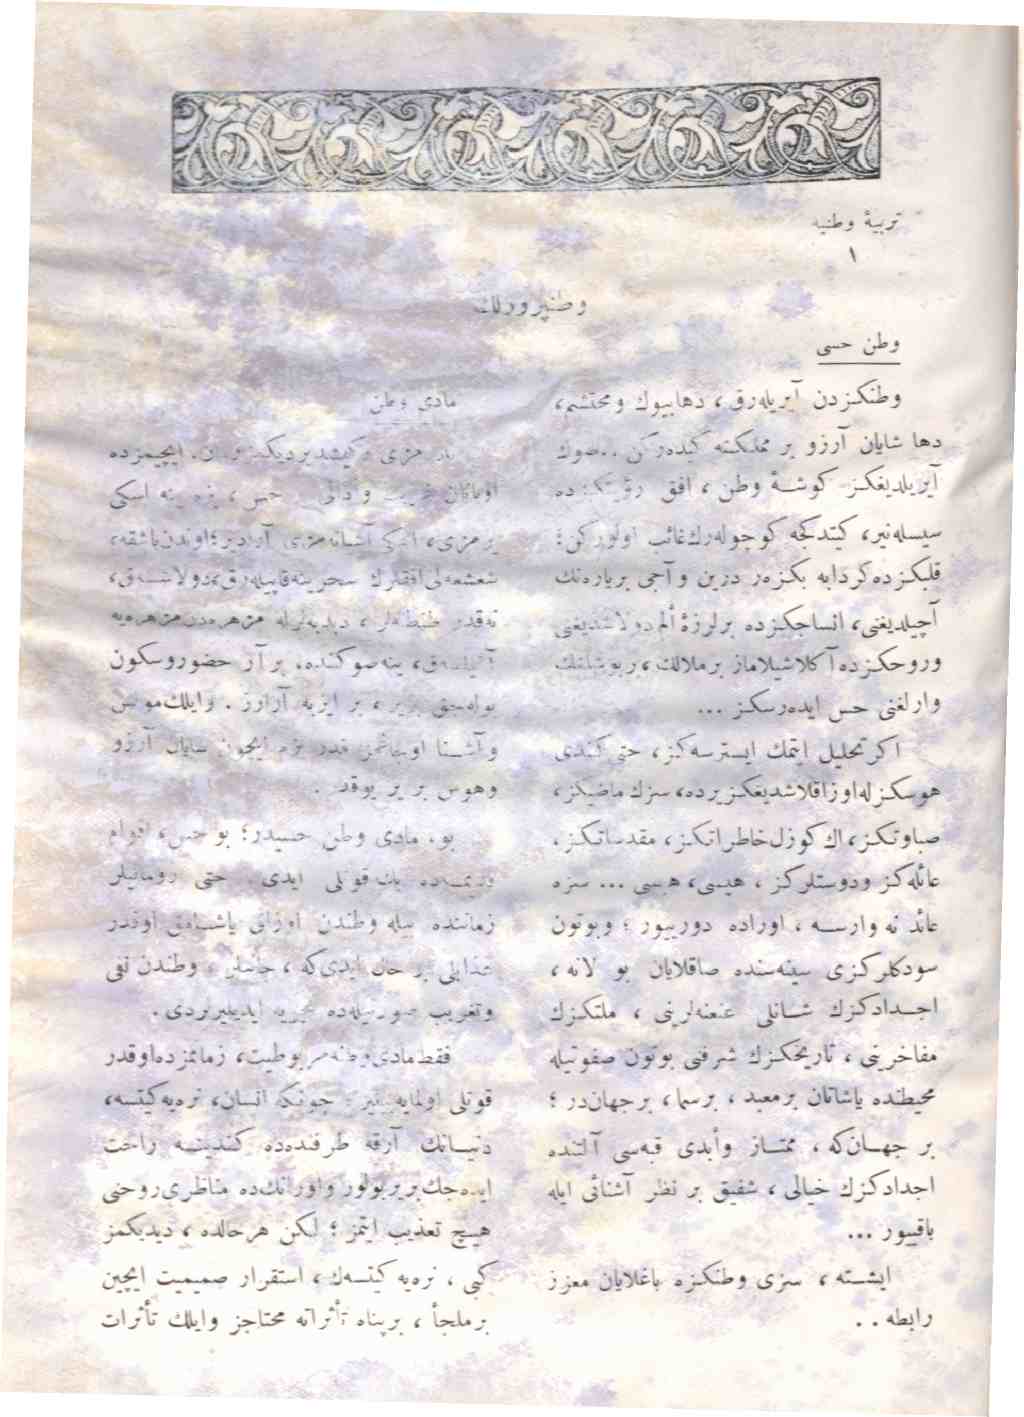 تربیهٔ وطنیه
١
وطنپرورلك
وطن حسی
وطنكزدن آیریله‌رق، دها بیوك و محتشم،
دها شایان آرزو بر مملكته كیده‌ركن .. صوك
آیریلدیغكز كوشهٔ وطن، افق رؤیتكزده
سیسله‌نیر، كیتدكجه كوچوله‌رك غائب اولوركن؛
قلبكزده كردابه بكزه‌ر درین و آجی بریاره‌نك
آچیلدیغنی، انساجكزده برلرزهٔ ألم دولاشدیغنی
وروحكزده آكلاشیلاماز برملالك،
وارلغنی حس ایده‌رسكز ...
اكر تحلیل ایتمك ایسترسه‌كز، حتی كندی
هوسكزله اوزاقلاشدیغكز یرده، سزك ماضیكز،
صباوتكز، اك كوزل خاطراتكز، مقدساتكز،
عائله‌كز ودوستلركز، هپسی، هپسی ... سزه
عائد نه وارسه، اوراده دورییور؛ وبوتون
سودكلركزی سینه‌سنده صاقلایان بو لانه،
اجدادكزك شانلی عنعنه‌لرینی، ملتكزك
مفاخرینی، تاریخكزك شرفنی بوتون صفوتیله
محیطنده یاشاتان برمعبد، برسما، برجهان‌در؛
بر جهان‌كه، ممتاز وأبدی قبه‌سی آلتنده
اجدادكزك خیالی، شفیق بر نظر آشنائی ایله
باقییور ...
ایشته، سزی وطنكزه باغلایان معزز
رابطه ..
مادی وطن
ایچیمزده
حس، بزه ینه اسكی
یرمزی، اسكی آشیانه‌مزی آرادیر؛ اوندن باشقه،
شعشعه‌لی افقلرك سحرینه قاپیله‌رق،
نه‌قدر طنطنه‌لر، دبدبه‌لرله
ینه صوكنده، بر آز حضور وسكون
بوله‌جق بر یر، بر ایز آرارز.
قدر بزم ایچون شایان آرزو
وهوس بر یر یوقدر.
بو، مادی وطن حسیدر؛ بو حس، اقوام
قدیمه‌ده پك قوتلی ایدی. حتی رومالیلر
زماننده بیله وطندن اوزاق یاشامق اوقدر
عذابلی بر حال ایدی‌كه، جانیلر، وطندن نفی
وتغریب صورتیله‌ده تجزیه ایدیلیرلردی.
فقط مادی وطنه مربوطیت، زمانمزده اوقدر
قوتلی اولمایه‌بیلیر؛ چونكه انسان، نره‌یه كیتسه،
دنیانك آرقه طرفنده‌ده كندینه راحت
ایده‌جك بریر بولور واورانك‌ده مناظری روحنی
هیچ تعذیب ایتمز؛ لكن هرحالده، دیدیكمز
كبی، نره‌یه كیتسه‌ك، استقرار صمیمیت ایچین
برملجأ، برپناه تأثراته محتاجز وایلك تأثرات